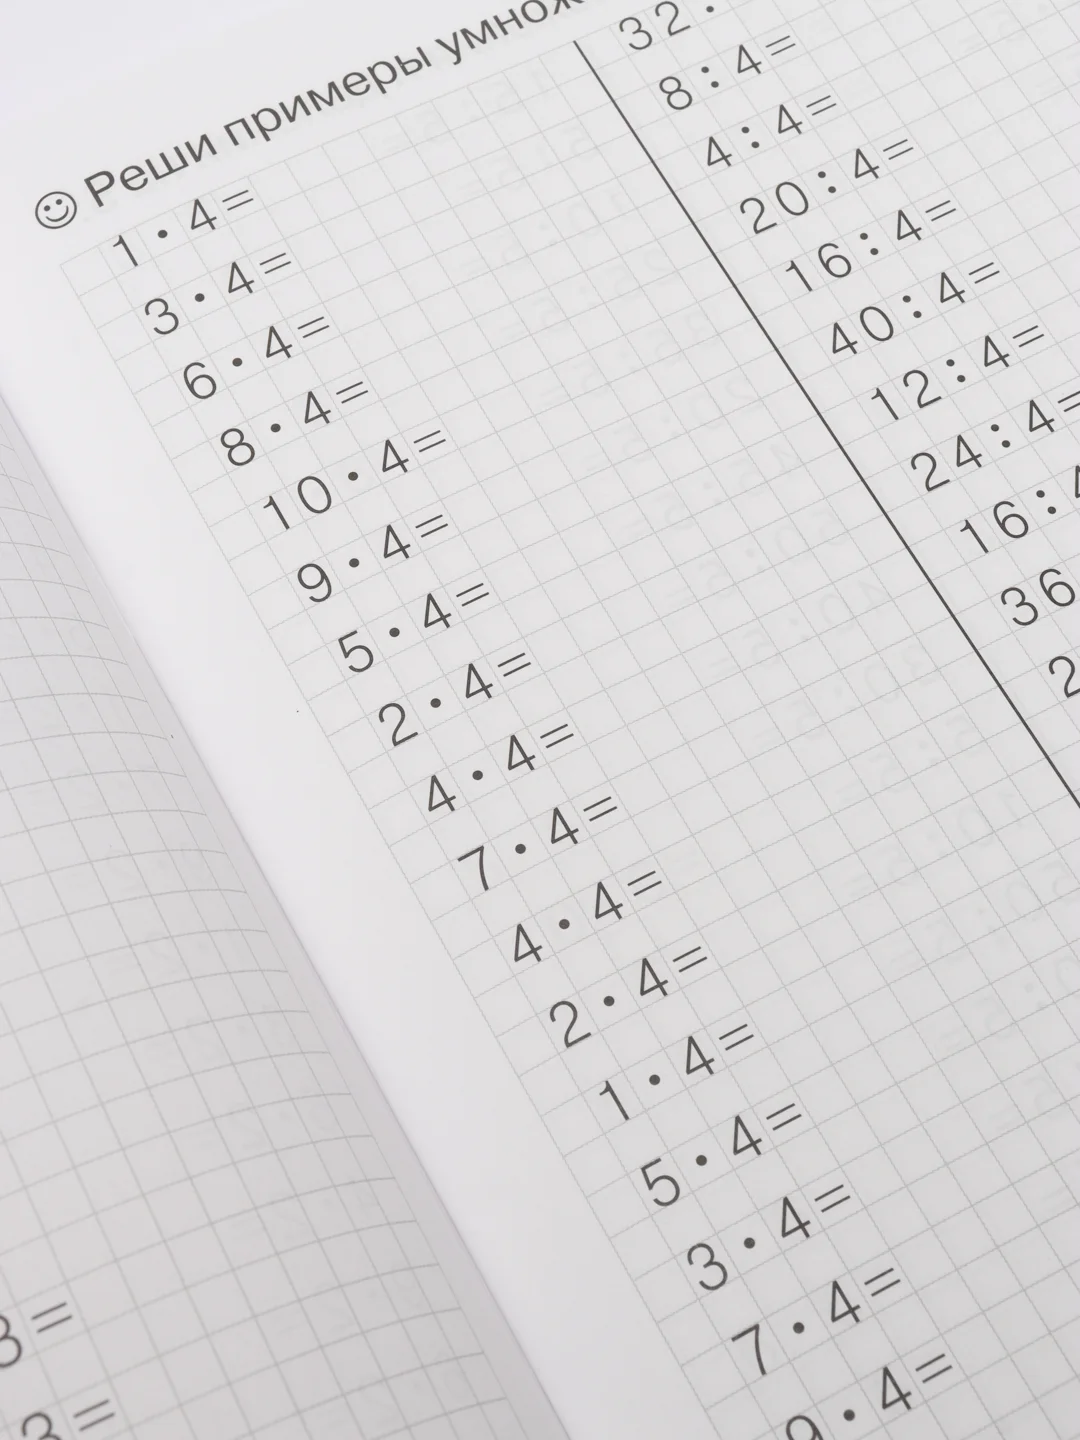 ☺ Реши примеры умнож
1 · 4 =
3 · 4 =
6 · 4 =
8 · 4 =
10 · 4 =
9 · 4 =
5 · 4 =
2 · 4 =
4 · 4 =
7 · 4 =
4 · 4 =
2 · 4 =
1 · 4 =
5 · 4 =
3 · 4 =
7 · 4 =
9 · 4 =
32
8 : 4 =
4 : 4 =
20 : 4 =
16 : 4 =
40 : 4 =
12 : 4 =
24 : 4 =
16 : 4
36
2
3 =
3 =